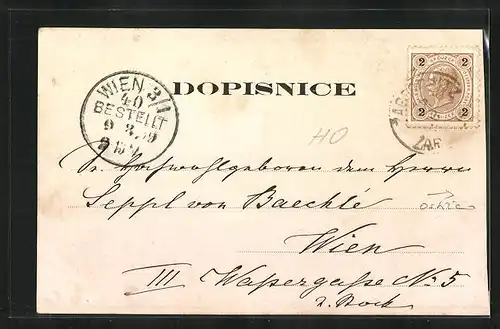 DOPISNICE
WIEN 3/1
40
BESTELLT
2 2
2 2
HO
Sr. Hochwohlgeboren dem Herrn
Seppl von Baechlé
Wien
III Wassergasse No 5
2. Stock